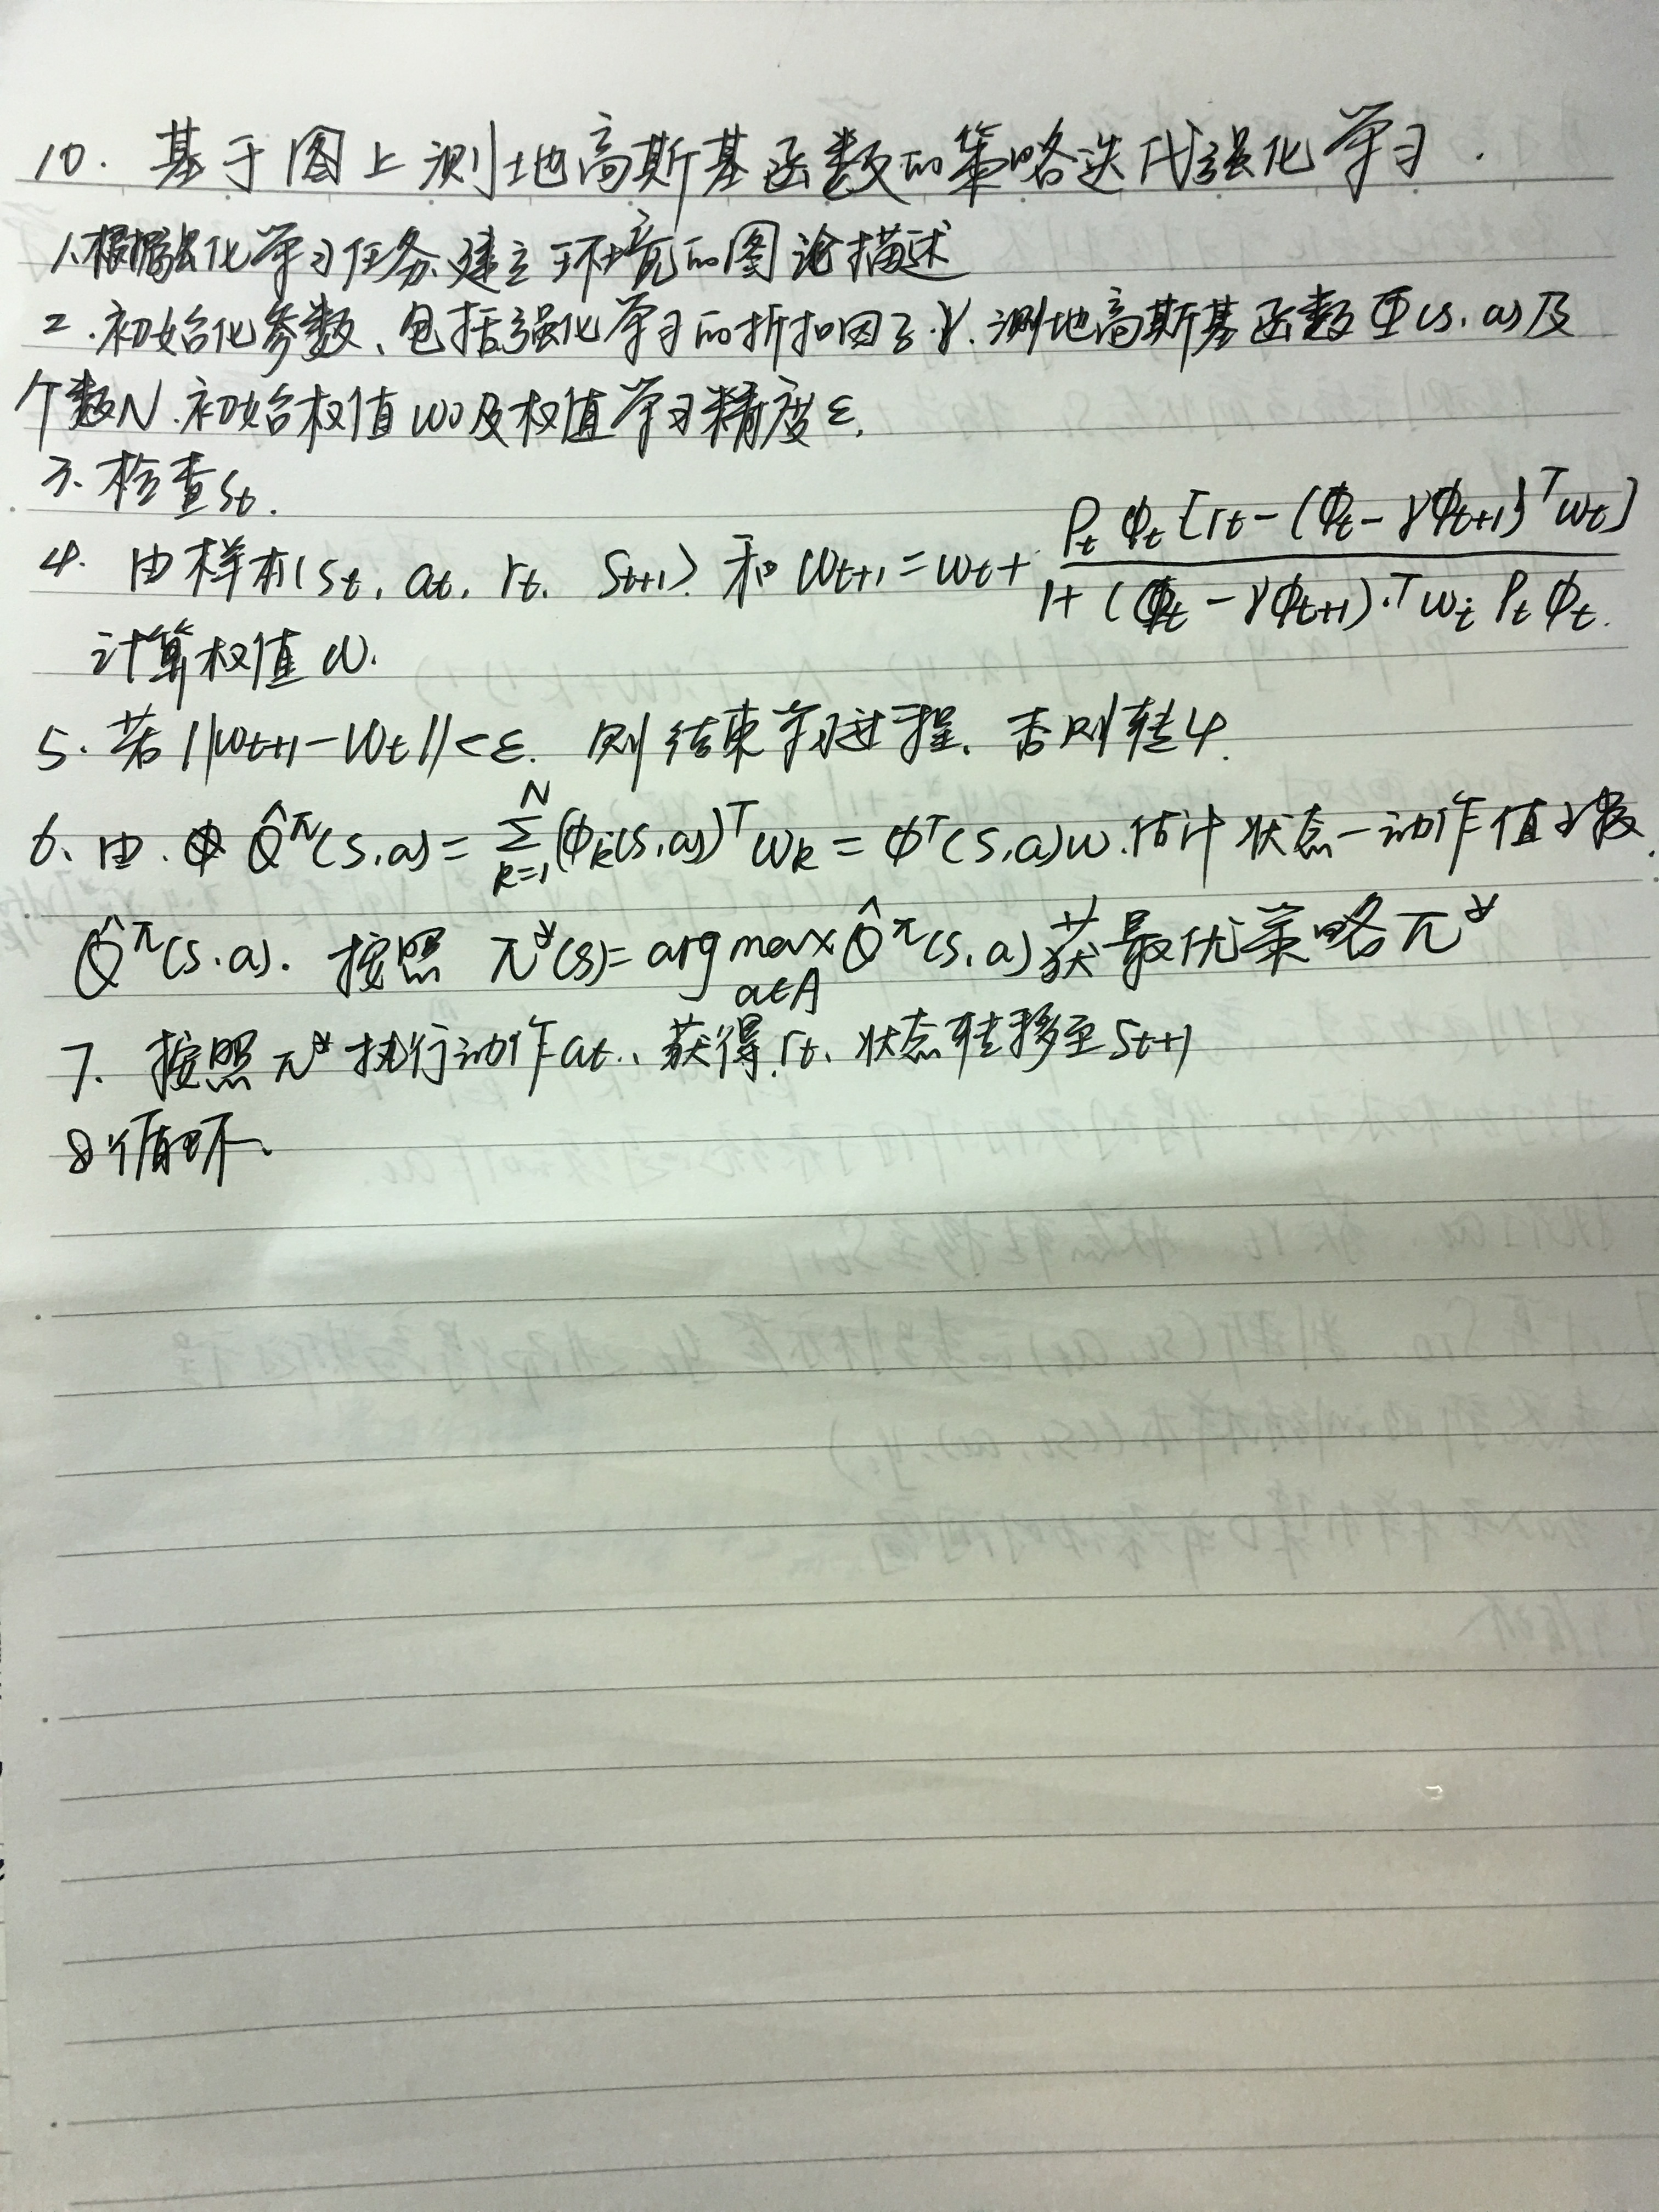 10. 基于图上测地高斯基函数的策略迭代强化学习.
1.根据强化学习任务、建立环境的图论描述
2.初始化参数、包括强化学习的折扣因子γ.测地高斯基函数Φ(s,a)及
个数N.初始权值w0及权值学习精度ε.
3.检查St.
4. 由样本(st, at, rt, St+1)和 wt+1=wt+ Pt Φt [rt-(Φt-γΦt+1)^T wt] / 1+(Φt-γΦt+1).^T wi Pt Φt.
计算权值 w.
5. 若||wt+1-wt||<ε. 则结束学习过程. 否则转4.
6、由. Φ Q̂^π(s,a)=Σ_{k=1}^{N}(Φk(s,a))^T wk = Φ^T(s,a)w.估计状态-动作值函数.
Q̂^π(s,a). 按照 π*(s)=arg max_{a∈A} Q̂^π(s,a)获最优策略π*
7. 按照π*执行动作at.、获得rt、状态转移至St+1
8循环、